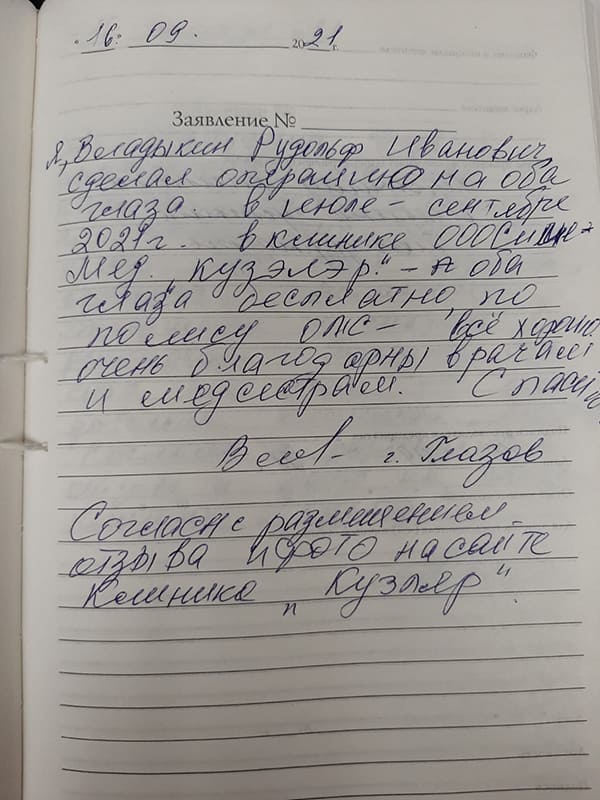 "16" 09. 2021 г.
Заявление №
Я, Владыкин Рудольф Иванович,
сделал операцию на оба
глаза. в июле - сентябре
2021 г. в клинике ООО
Мед. "Кузэлэр." - оба
глаза бесплатно, по
полису ОМС - всё хорошо
очень благодарны врачам
и медсёстрам. Спасибо
г. Глазов
Согласн с размещением
отзыва и фото на сайте
Клиника "Кузляр".